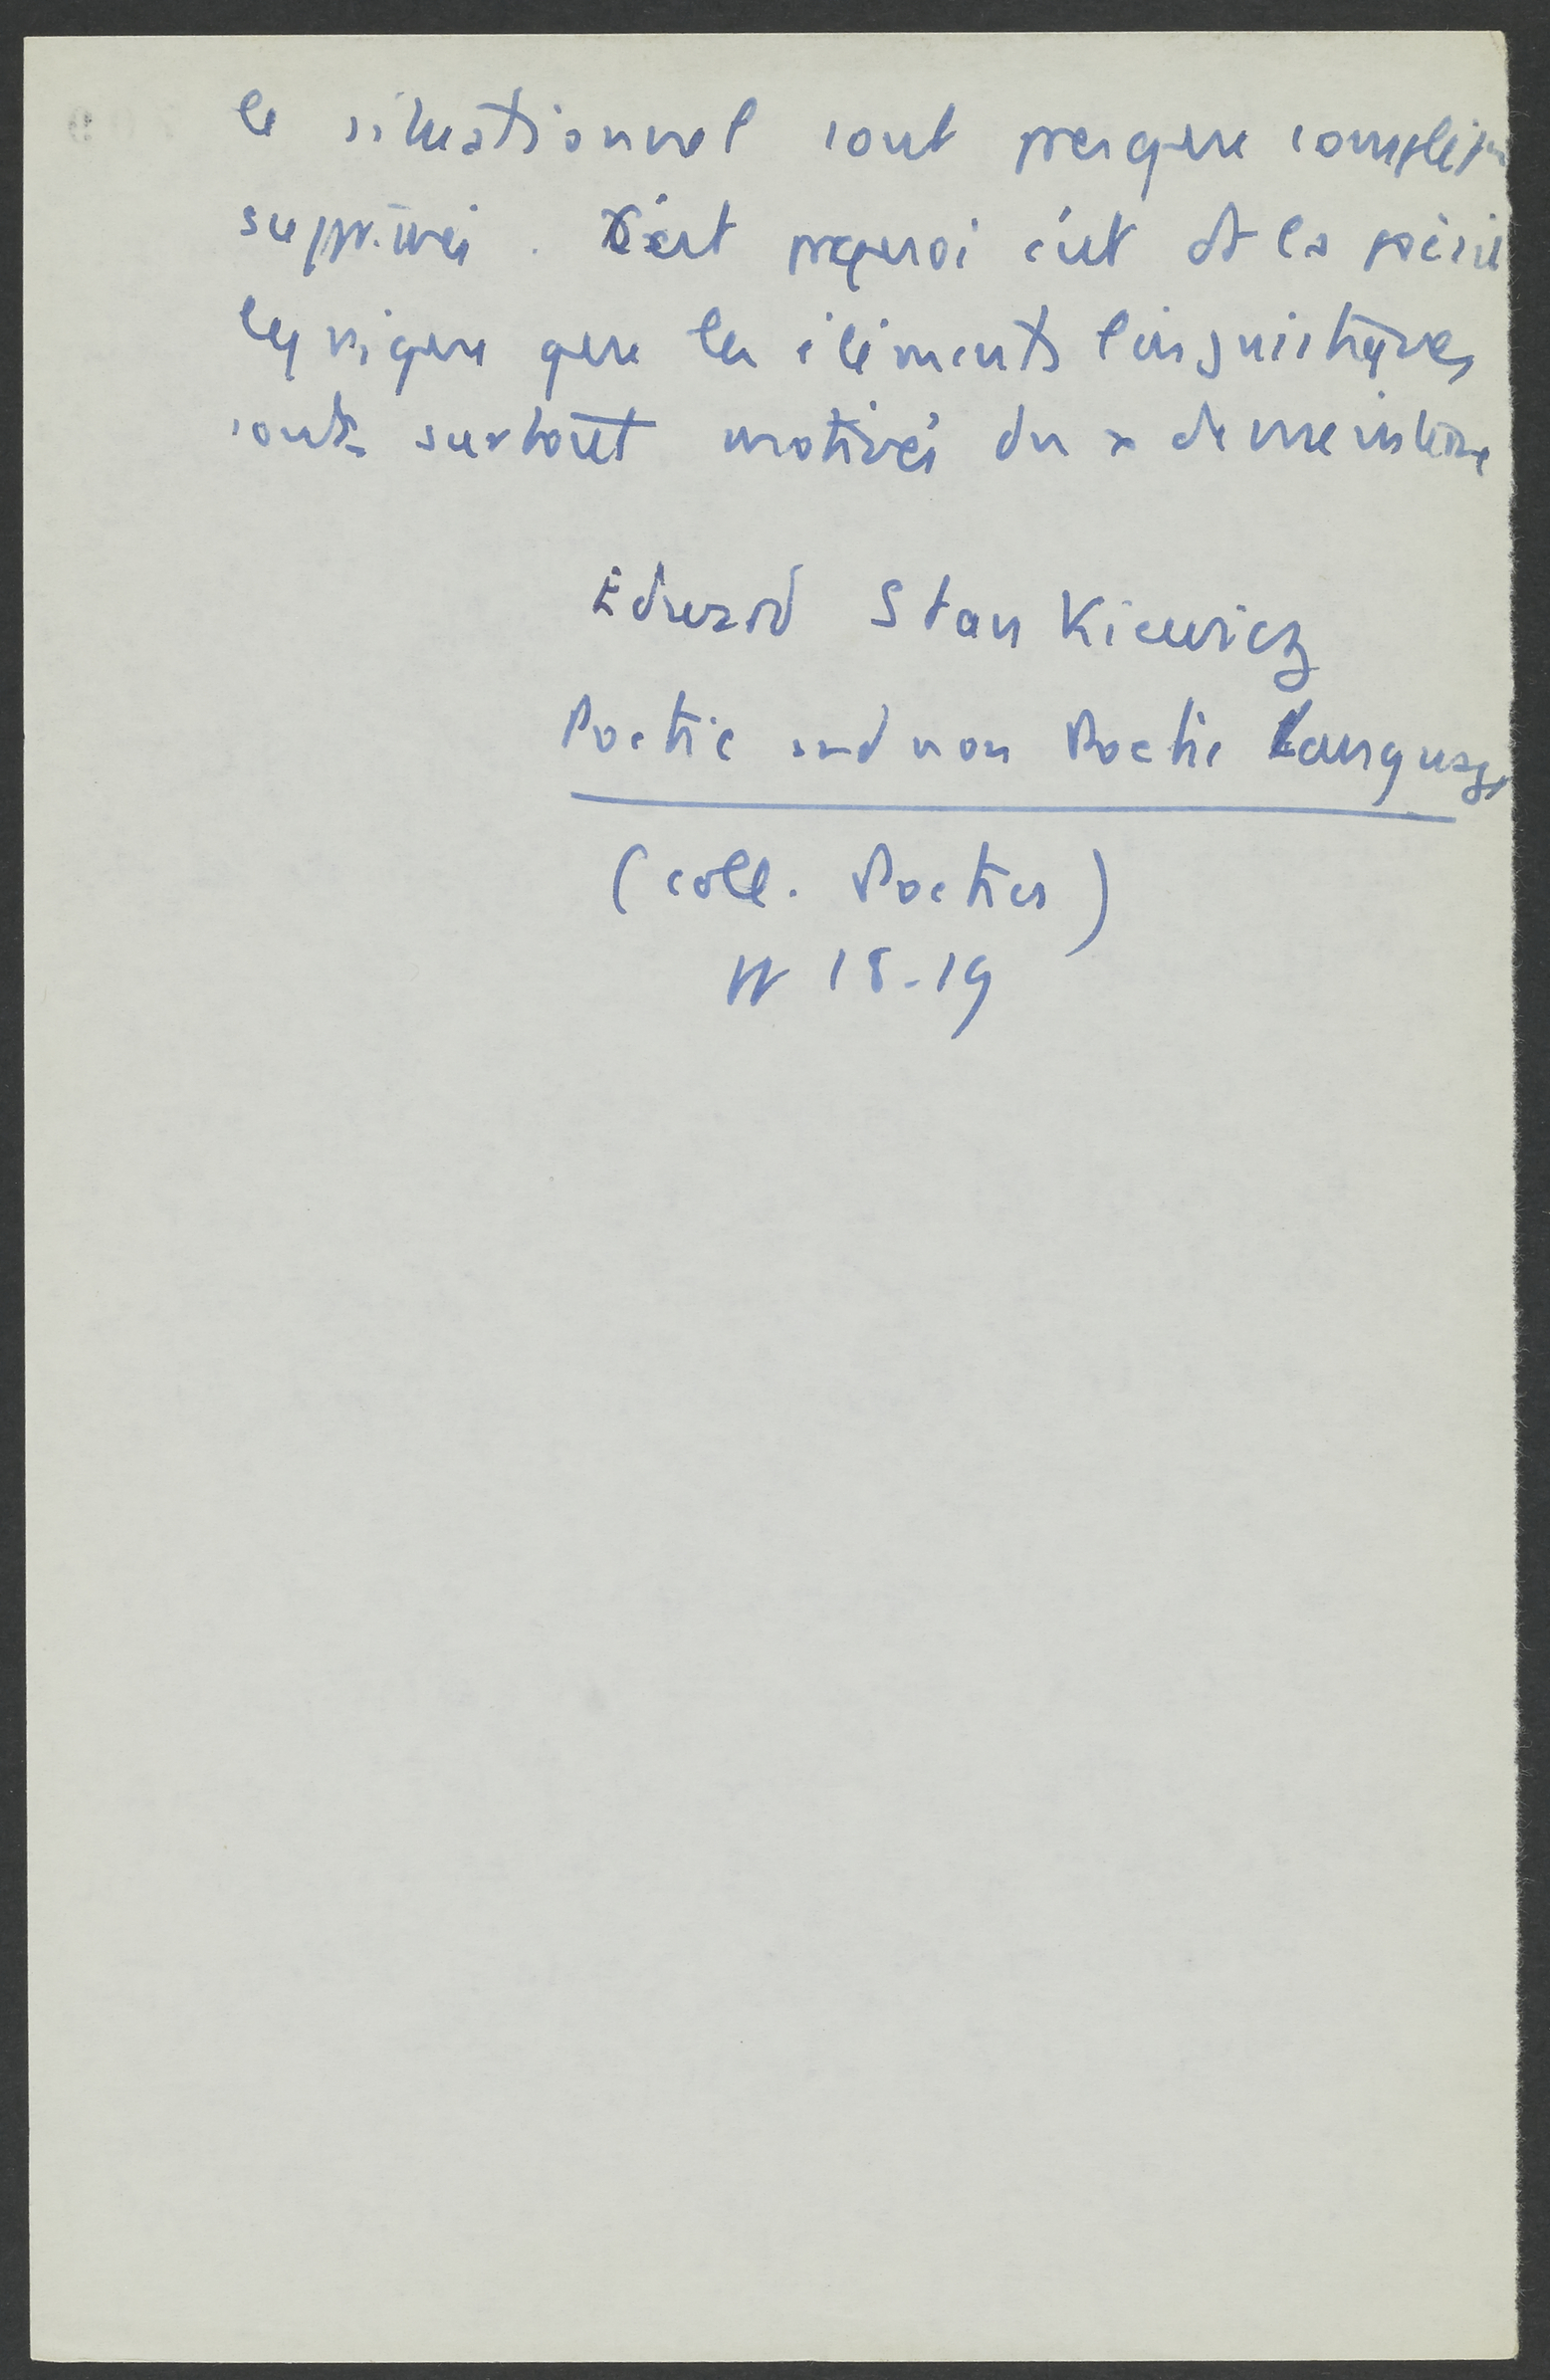 le situationnel sont presque complètm
supprimés. C'est pquoi c'est ds la poésie
lyrique que les éléments linguistiques
sont surtout motivés de
Edward Stankiewicz
Poetic and non Poetic Language
(coll. Poetics)
pp 18-19